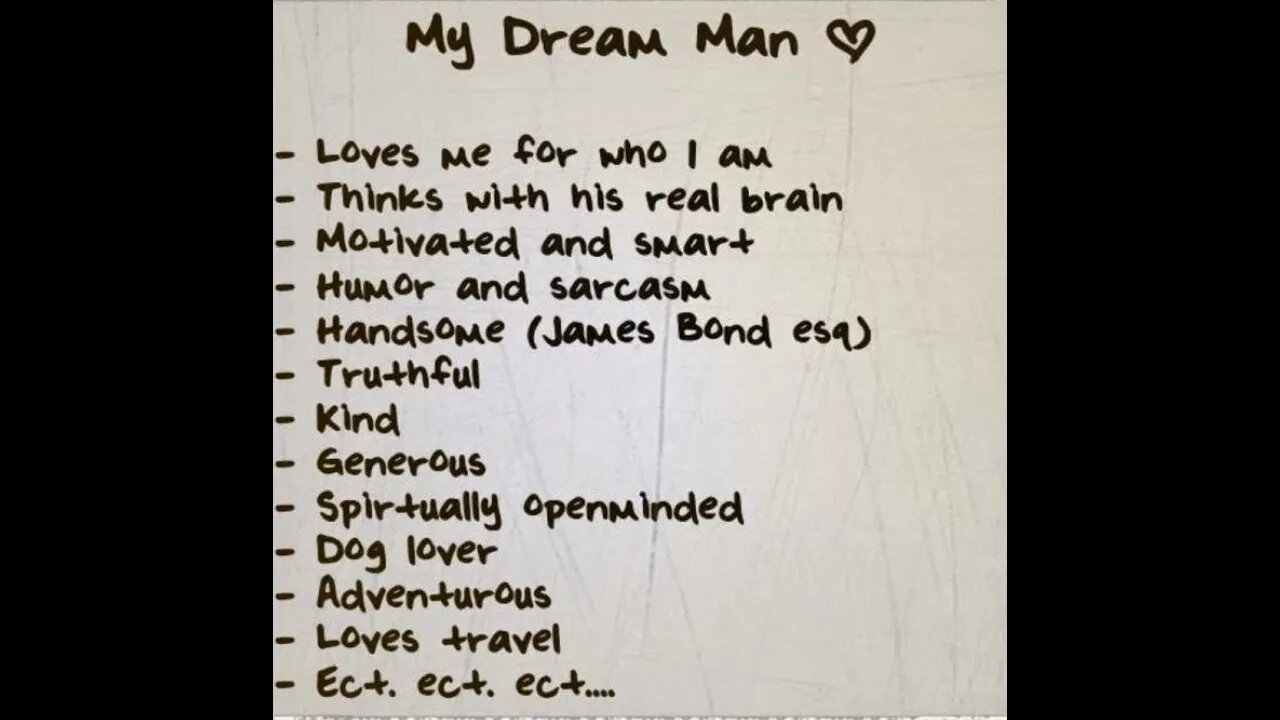 My Dream Man ♡
- Loves me for who I am
- Thinks with his real brain
- Motivated and smart
- Humor and sarcasm
- Handsome (James Bond esq)
- Truthful
- Kind
- Generous
- Spirtually openminded
- Dog lover
- Adventurous
- Loves travel
- Ect. ect. ect....